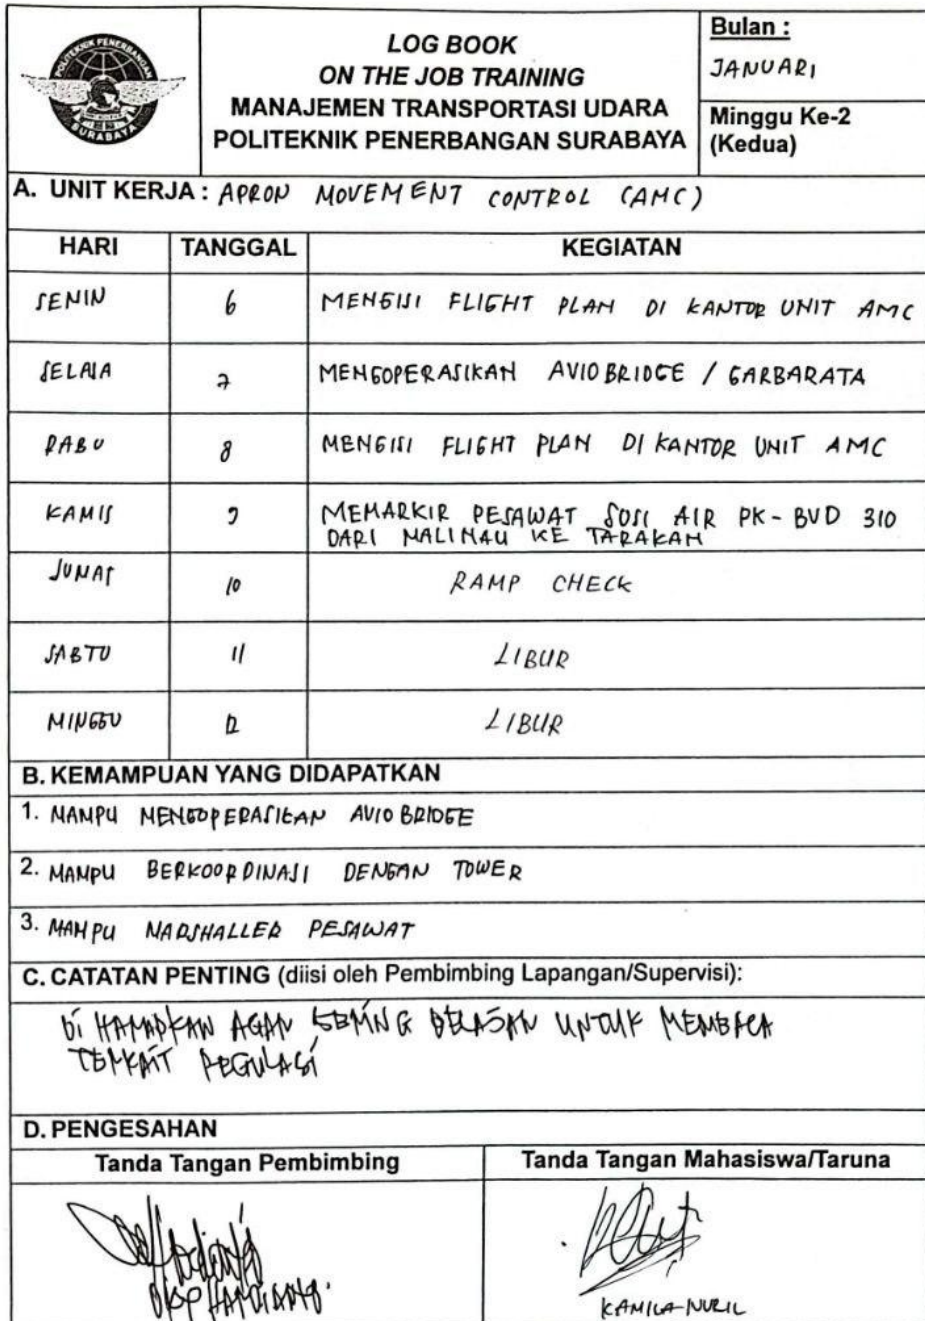 POLITEKNIK PENERBANGAN
SURABAYA
LOG BOOK
ON THE JOB TRAINING
MANAJEMEN TRANSPORTASI UDARA
POLITEKNIK PENERBANGAN SURABAYA
Bulan :
JANUARI
Minggu Ke-2
(Kedua)
A. UNIT KERJA : APRON MOVEMENT CONTROL (AMC)
HARI TANGGAL KEGIATAN
SENIN 6 MENGISI FLIGHT PLAN DI KANTOR UNIT AMC
SELASA 7 MENGOPERASIKAN AVIOBRIDGE / GARBARATA
RABU 8 MENGISI FLIGHT PLAN DI KANTOR UNIT AMC
KAMIS 9 MEMARKIR PESAWAT SUSI AIR PK-BVD 310
DARI MALINAU KE TARAKAN
JUMAT 10 RAMP CHECK
SABTU 11 LIBUR
MINGGU 12 LIBUR
B. KEMAMPUAN YANG DIDAPATKAN
1. MAMPU MENGOPERASIKAN AVIOBRIDGE
2. MAMPU BERKOORDINASI DENGAN TOWER
3. MAMPU MARSHALLER PESAWAT
C. CATATAN PENTING (diisi oleh Pembimbing Lapangan/Supervisi):
DI HARAPKAN AGAR SERING BELAJAR UNTUK MEMBACA
TERKAIT REGULASI
D. PENGESAHAN
Tanda Tangan Pembimbing Tanda Tangan Mahasiswa/Taruna
KAMILA NURIL